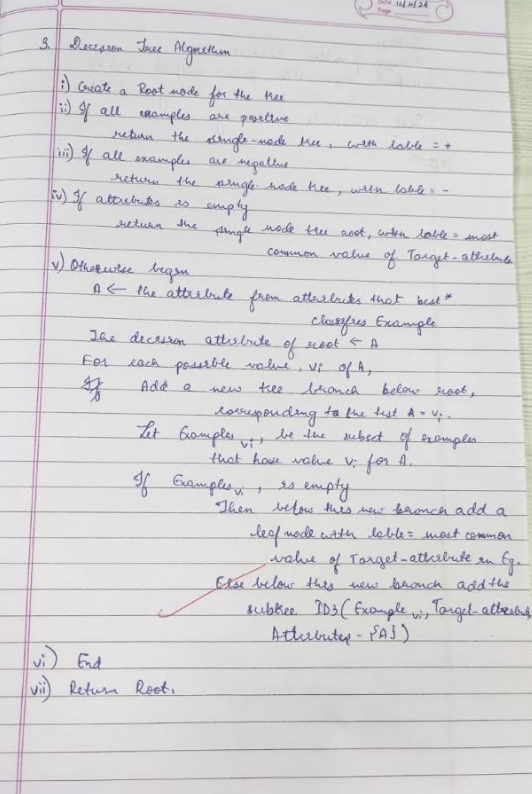 Date 16/4/24
Page
3. Decision Tree Algorithm
i) Create a Root node for the tree
ii) If all examples are positive
return the single-node tree, with lable = +
iii) If all examples are negative
return the single-node tree, with lable = -
iv) If attributes is empty
return the single node tree root, with lable = most
common value of Target-attribute
v) Otherwise begin
A ← the attribute from attributes that best*
classifies Example
The decision attribute of root ← A
For each possible value, vi of A,
Add a new tree branch below root,
corresponding to the test A = vi.
Let Examples vi, be the subset of examples
that have value vi for A.
If Examples vi, is empty
Then below this new branch add a
leaf node with lable = most common
value of Target-attribute in Eg.
Else below this new branch add the
subtree ID3(Example vi, Target-attribute,
Attributes - {A})
vi) End
vii) Return Root.